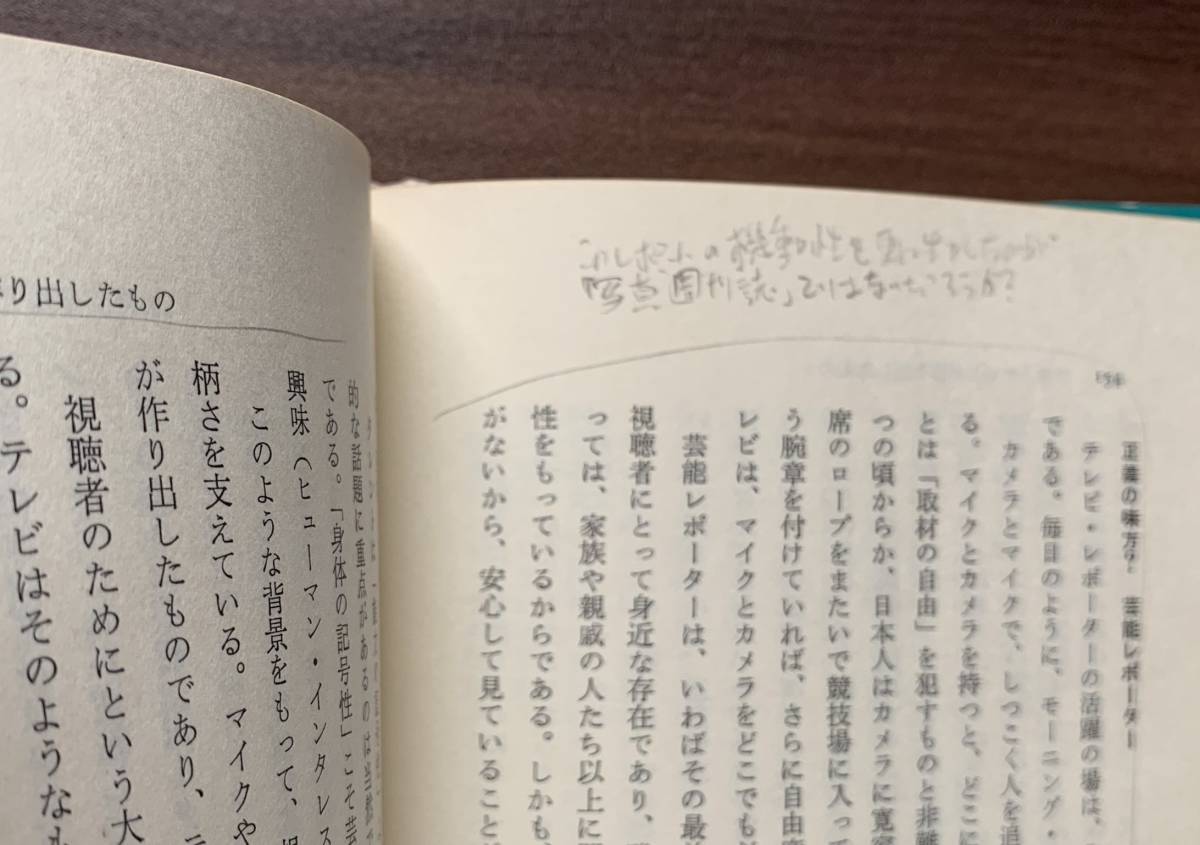 テレビ・レポーターの活躍の場は、
である。毎日のように、モーニング・
カメラとマイクで、しつこく人を追
る。マイクとカメラを持つと、どこに
とは「取材の自由」を犯すものと非難
つの頃からか、日本人はカメラに寛容
席のロープをまたいで競技場に入って
う腕章を付けていれば、さらに自由
レビは、マイクとカメラをどこでも
芸能レポーターは、いわばその最
視聴者にとって身近な存在であり、
っては、家族や親戚の人たち以上に
性をもっているからである。しかも、
がないから、安心して見ていること
154
正義の味方? 芸能レポーター
の機動性を
「写真週刊誌」ではないだろうか?
り出したもの
的な話題に重点があるのは当然
である。「身体の記号性」こそ芸
興味(ヒューマン・インタレス
このような背景をもって、
柄さを支えている。マイクや
が作り出したものであり、
視聴者のためにという大
る。テレビはそのようなも